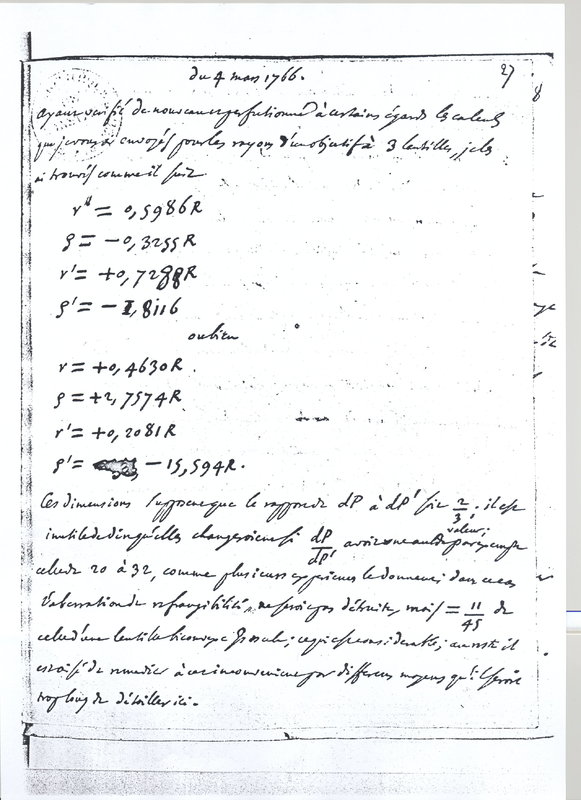 du 4 mars 1766.
27
ayant verifié de nouveau et perfectionné à certains égards les calculs
que j'avois envoyés pour les rayons d'un objectif à 3 lentilles, je les
ai trouvés comme il suit
r = 0,5986R
ρ = −0,3255R
r' = +0,7288R
ρ' = −1,8116
ou bien
r = +0,4630R.
ρ = +2,7574R
r' = +0,2081R
ρ' = −15,594R.
Ces dimensions supposent que le rapport de dP à dP' soit 2/3. il est
inutile de dire qu'elles changeroient si dP/dP' avoit une autre valeur; par exemple
celle de 20 à 32, comme plusieurs expériences le donnent, dans ce cas
l'aberration de refrangibilité ne seroit pas détruite, mais = 11/45 de
celle d'une lentille biconvexe ; ce qui est considerable; au reste il
est aisé de remedier à cet inconvenient par differens moyens qu'il seroit
trop long de détailler ici.